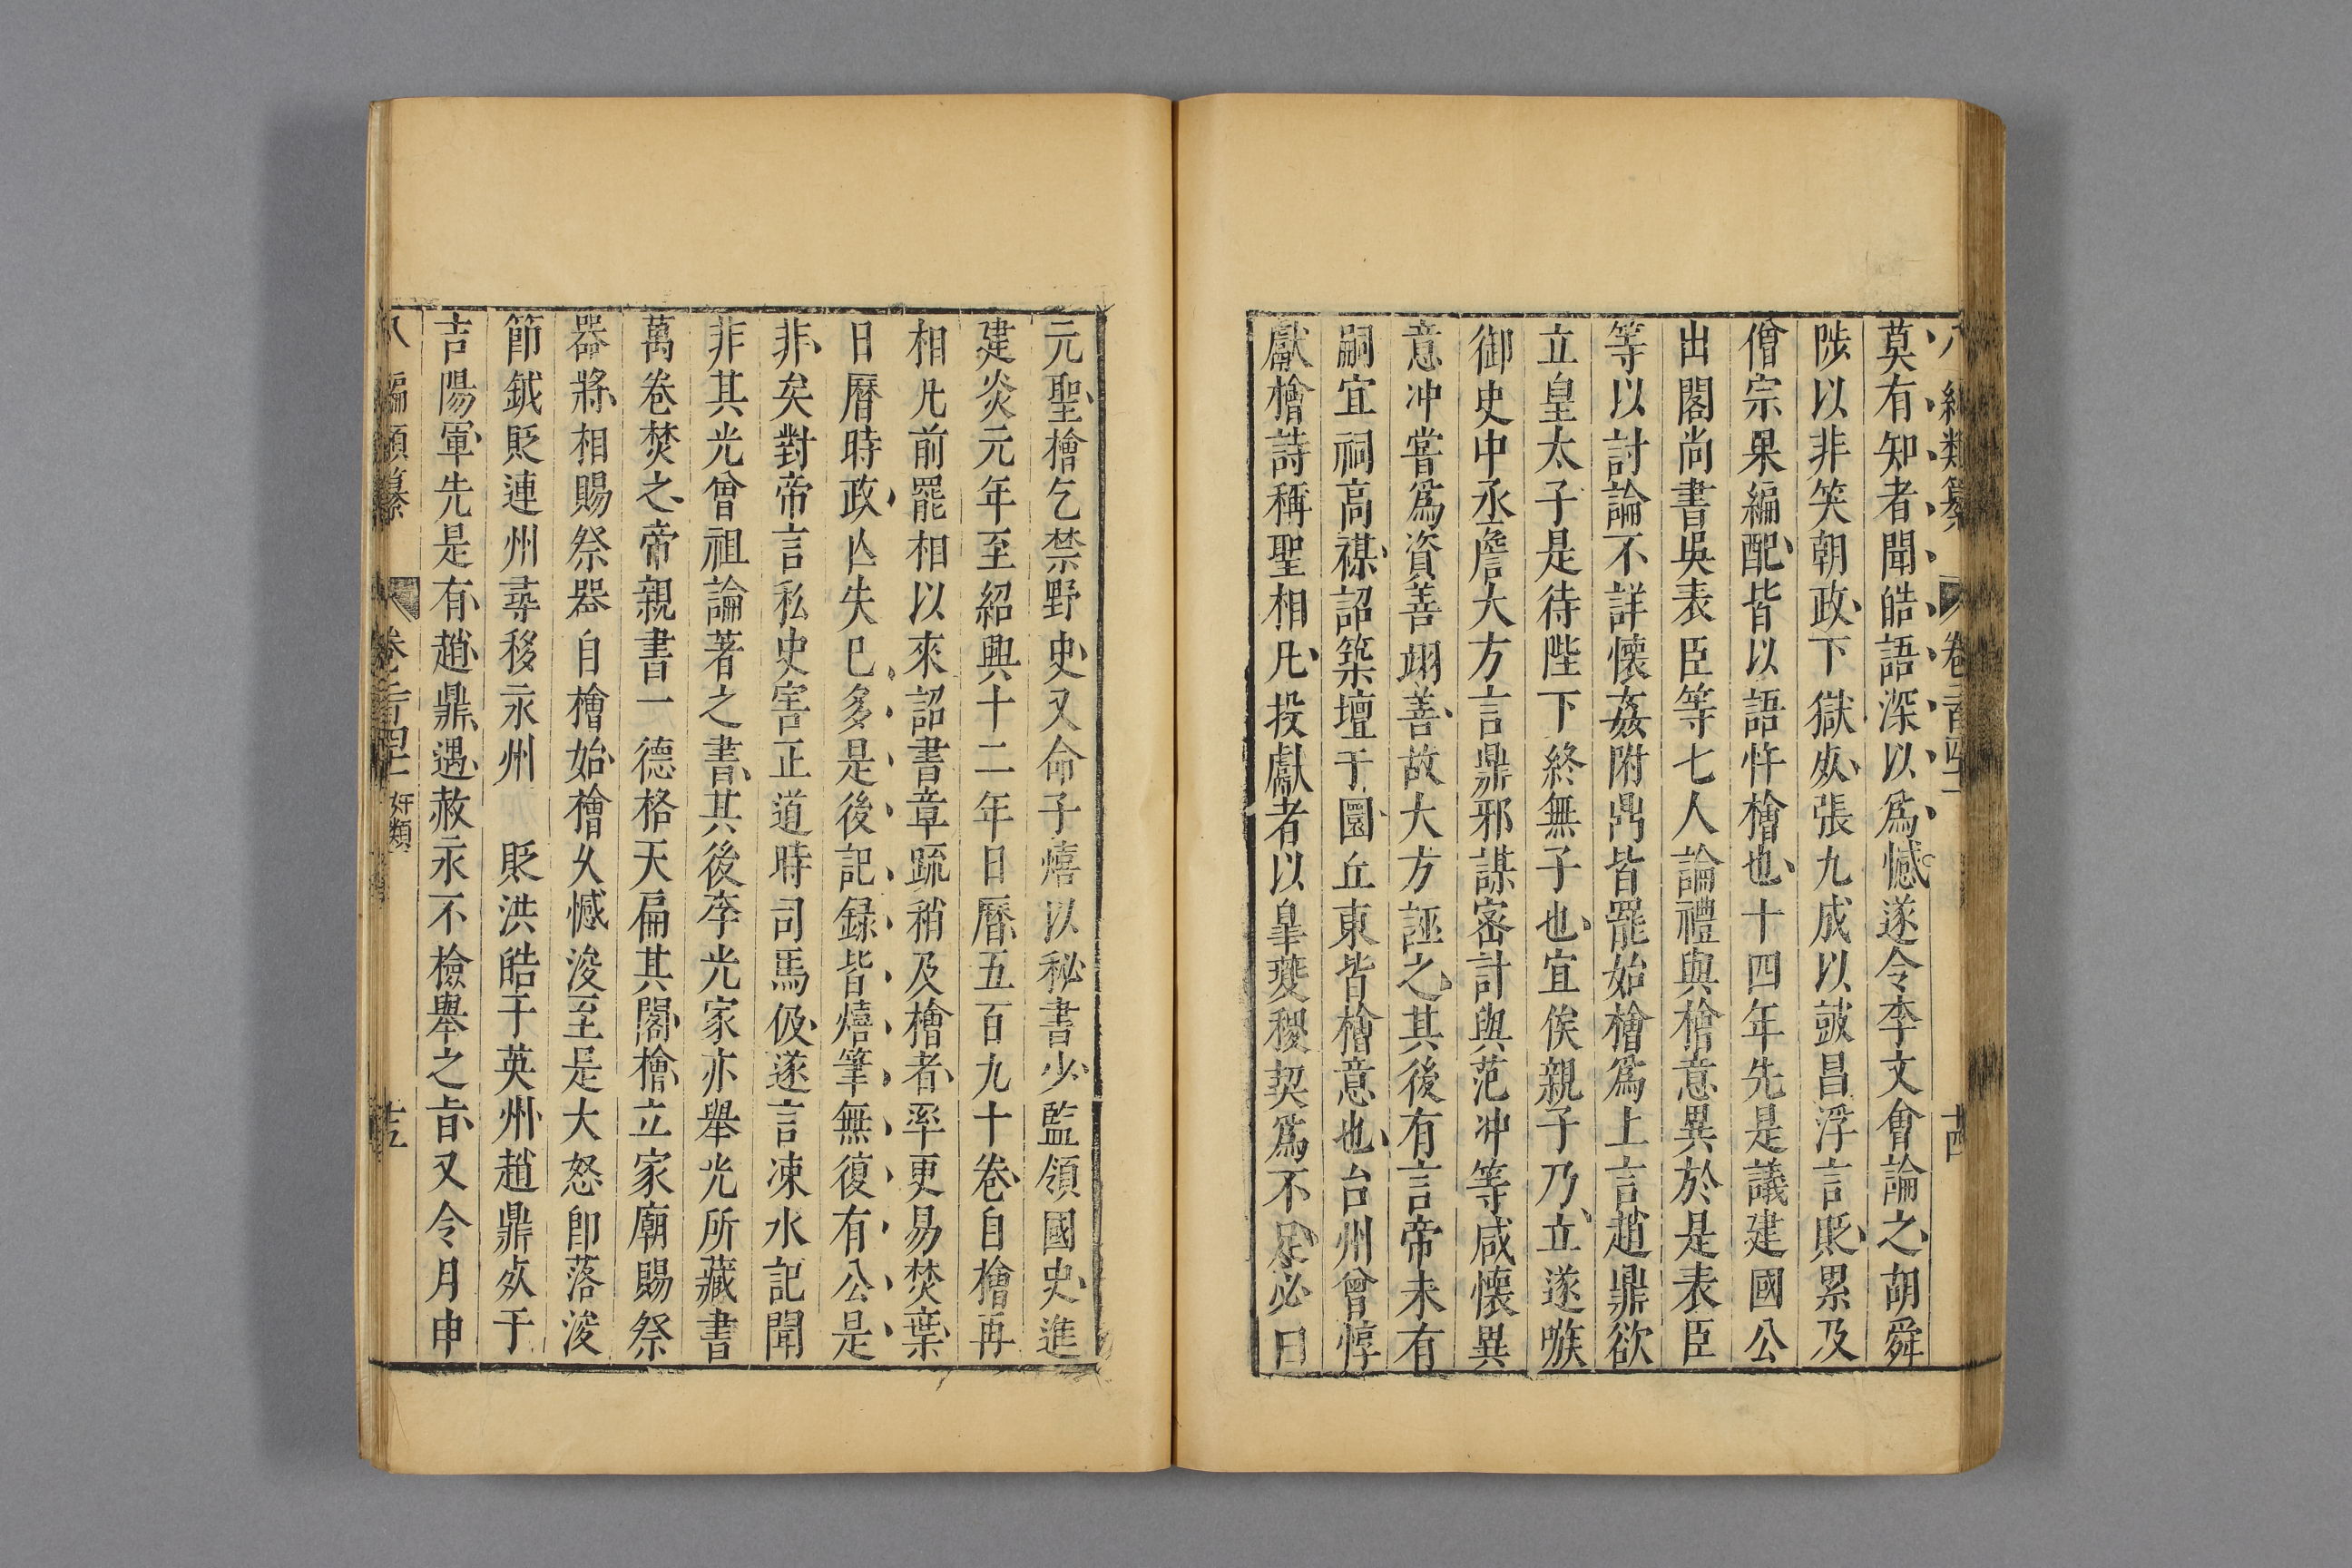 莫有知者聞皓語深以爲憾遂令李文會論之胡舜
陟以非笑朝政下獄死張九成以鼓昌浮言貶累及
僧宗杲編配皆以語忤檜也十四年先是議建國公
出閣尚書吳表臣等七人論禮與檜意異於是表臣
等以討論不詳懷姦附鼎皆罷始檜爲上言趙鼎欲
立皇太子是待陛下終無子也宜俟親子乃立遂嗾
御史中丞詹大方言鼎邪謀密計與范冲等咸懷異
意冲嘗爲資善翊善故大方誣之其後有言帝未有
嗣宜祠高禖詔築壇于圜丘東皆檜意也台州曾惇
獻檜詩稱聖相凡投獻者以臯夔稷契爲不足必曰
元聖檜乞禁野史又命子熺以秘書少監領國史進
建炎元年至紹興十二年日曆五百九十卷自檜再
相凡前罷相以來詔書章疏稍及檜者率更易焚棄
日曆時政亾失已多是後記録皆熺筆無復有公是
非矣對帝言私史害正道時司馬伋遂言涑水記聞
非其光曾祖論著之書其後李光家亦舉光所藏書
萬卷焚之帝親書一德格天扁其閣檜立家廟賜祭
器將相賜祭器自檜始檜久憾浚至是大怒卽落浚
節鉞貶連州尋移永州　貶洪皓于英州趙鼎死于
吉陽軍先是有趙鼎遇赦永不檢舉之旨又令月申
八編類纂　卷二百四十一　奸類　十五